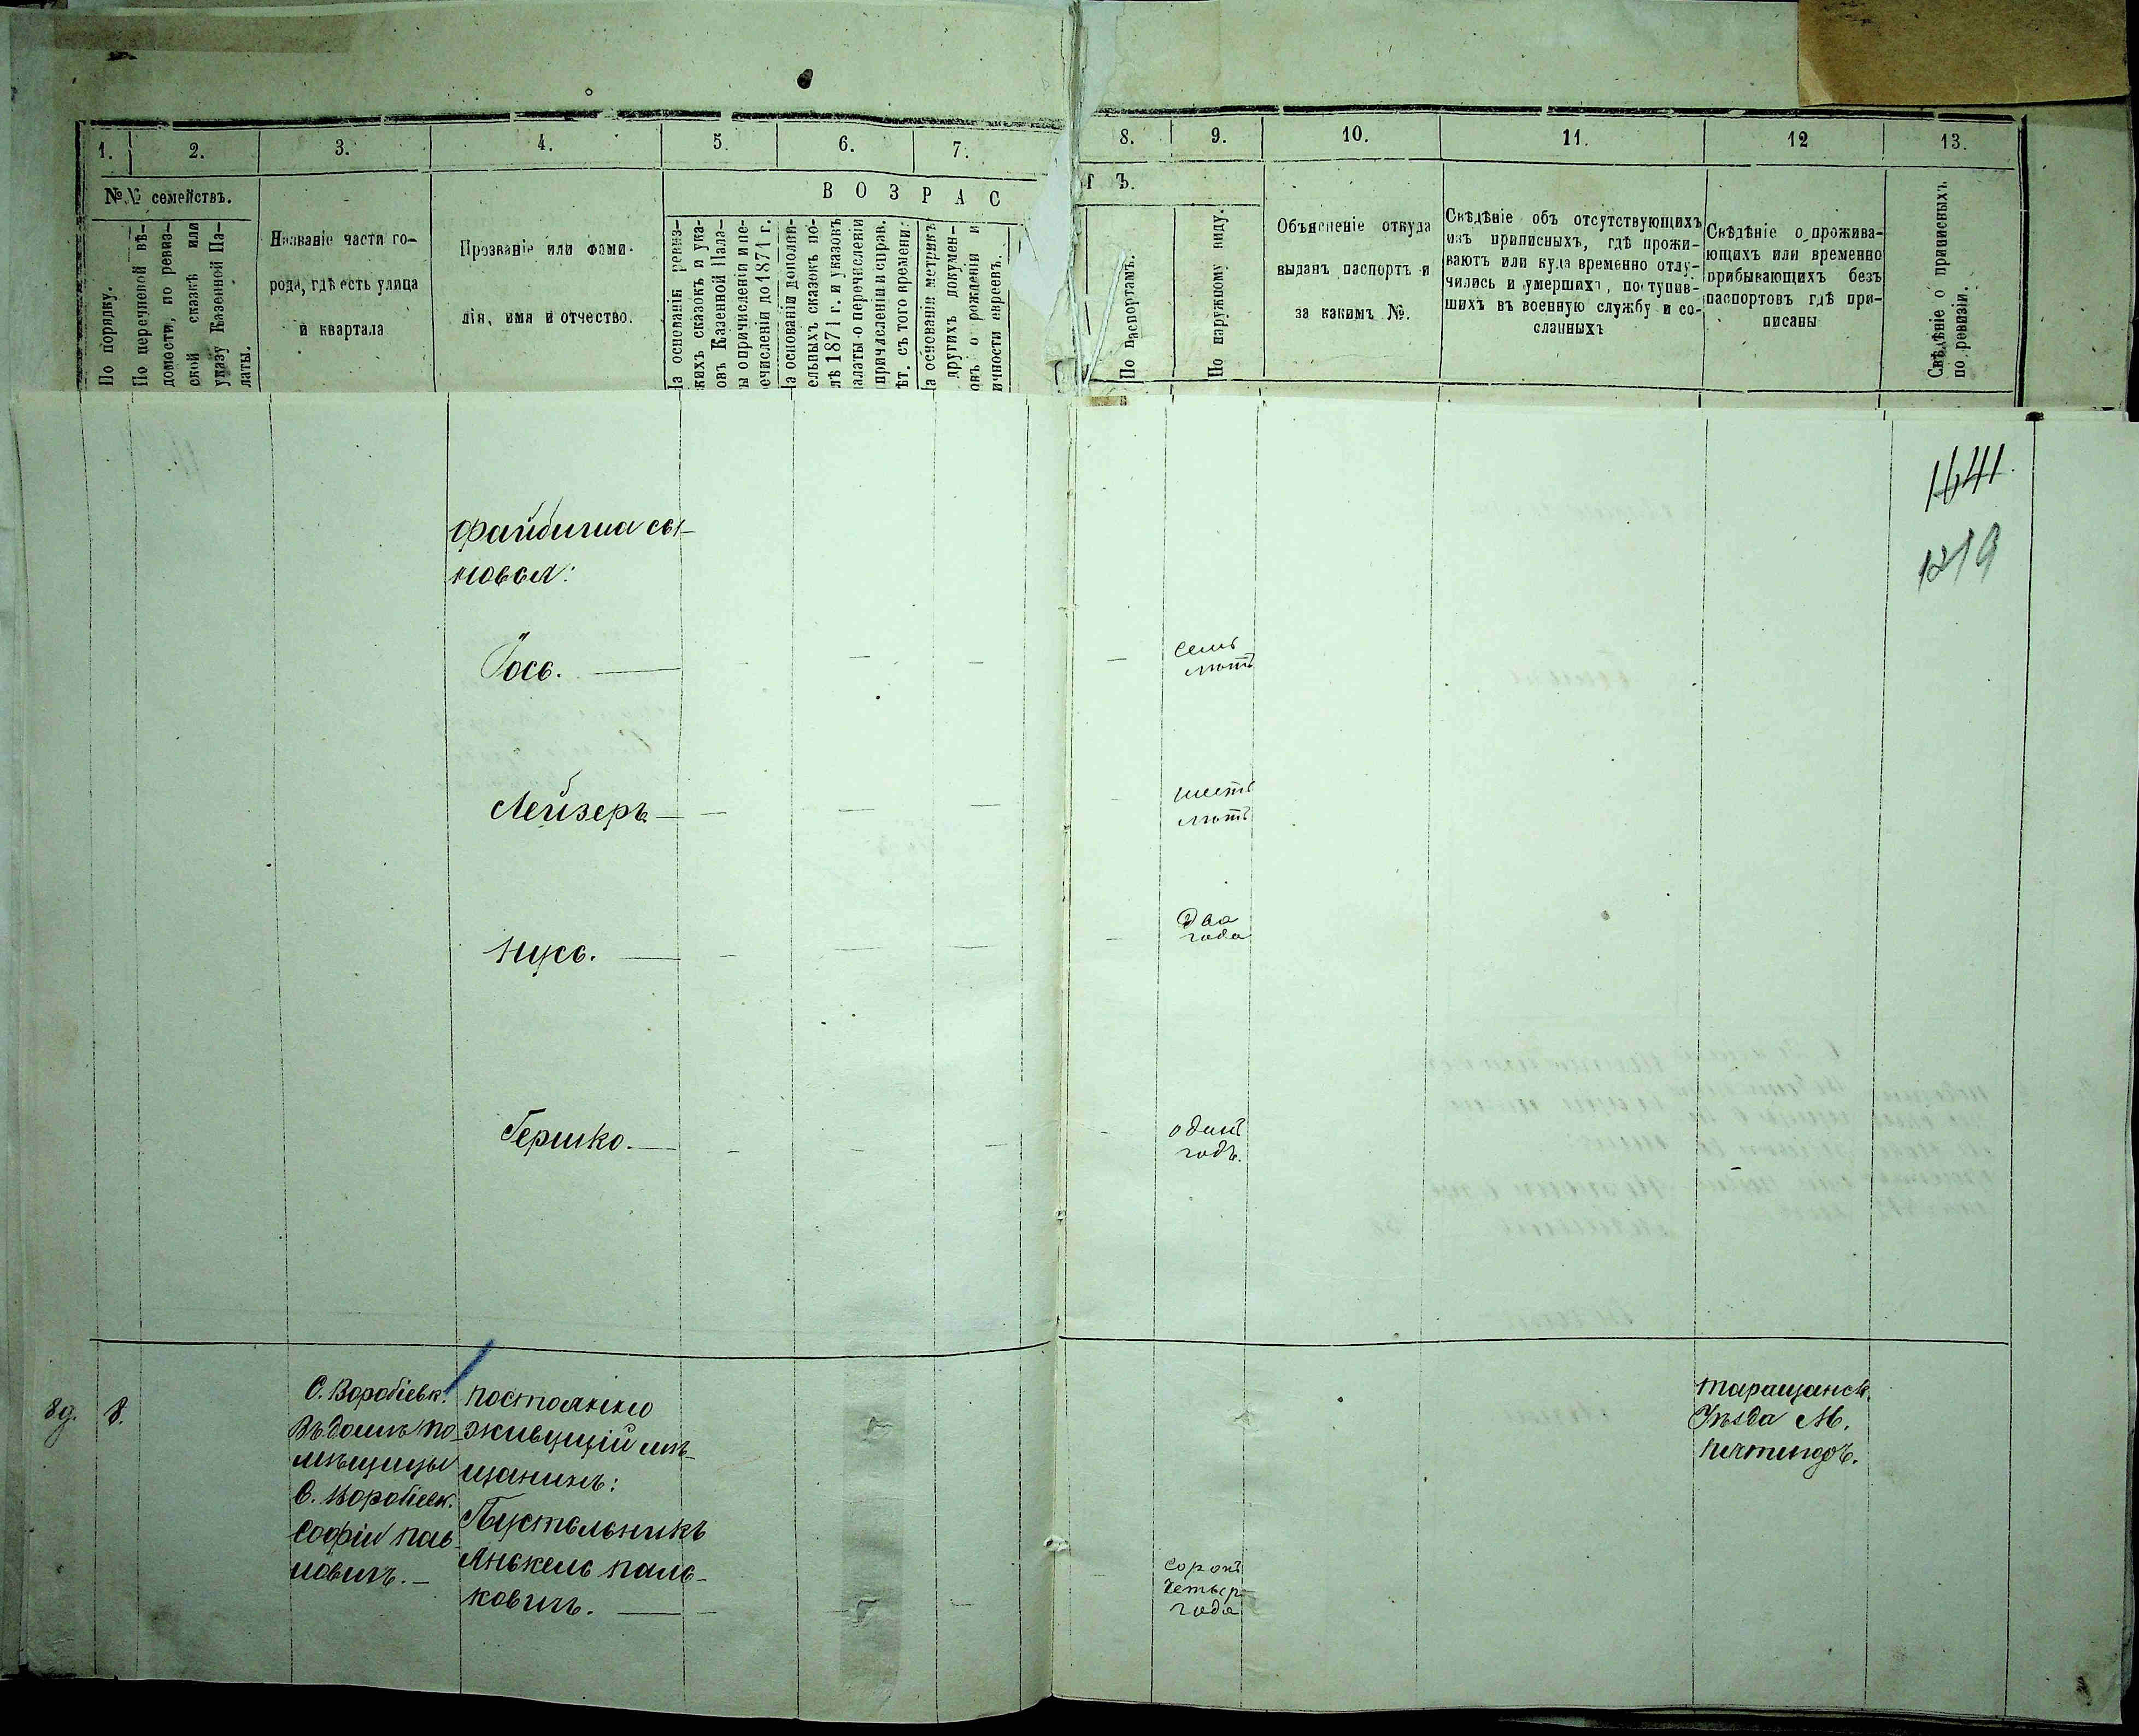 1. 2. 3. 4. 5. 6. 7. 8. 9. 10. 11. 12 13.
№№ семействъ.
В О З Р А С Т Ъ.
По порядку.
По перечневой вѣ-
домости, по ревиз-
ской сказкѣ или
указу Казенной Па-
латы.
Названіе части го-
рода, гдѣ есть улица
и квартала
Прозваніе или фами-
лія, имя и отчество.
На основаніи ревиз-
скихъ сказокъ и ука-
овъ Казенной Пала-
ы о причисленіи и пе-
ечисленіи до 1871 г.
На основаніи дополни-
ельныхъ сказокъ по-
лѣ 1871 г. и указовъ
алаты о перечисленіи
причисленіи и справ.
ѣт. съ того времени.
На основаніи метрикъ
другихъ докумен-
овъ о рожденіи и
ичности евреевъ.
По паспортамъ.
По наружному виду.
Объясненіе откуда
выданъ паспортъ и
за какимъ №.
Свѣдѣніе объ отсутствующихъ
изъ приписныхъ, гдѣ прожи-
ваютъ или куда временно отлу-
чились и умершихъ, поступив-
шихъ въ военную службу и со-
сланныхъ
Свѣдѣніе о прожива-
ющихъ или временно
прибывающихъ безъ
паспортовъ гдѣ при-
писаны
Свѣдѣніе о приписныхъ
по ревизіи.
1641.
1219
Файбиша сы-
новья:
Іось. — семь
лѣтъ
Лейзеръ — шесть
лѣтъ
два
года
Гершко. — одинъ
годъ.
89. 8.
С. Воробіевк.
Въ домѣ по-
мѣщицы
С. Воробіевк.
Софіи Пав-
ловичъ. —
постоянно
живущій мѣ-
щанинъ:
Пустельникъ
Янькель Паль-
ковичъ. —
сорокъ
четыр-
года
Таращанск.
Уѣзда М.
Пятигоръ.